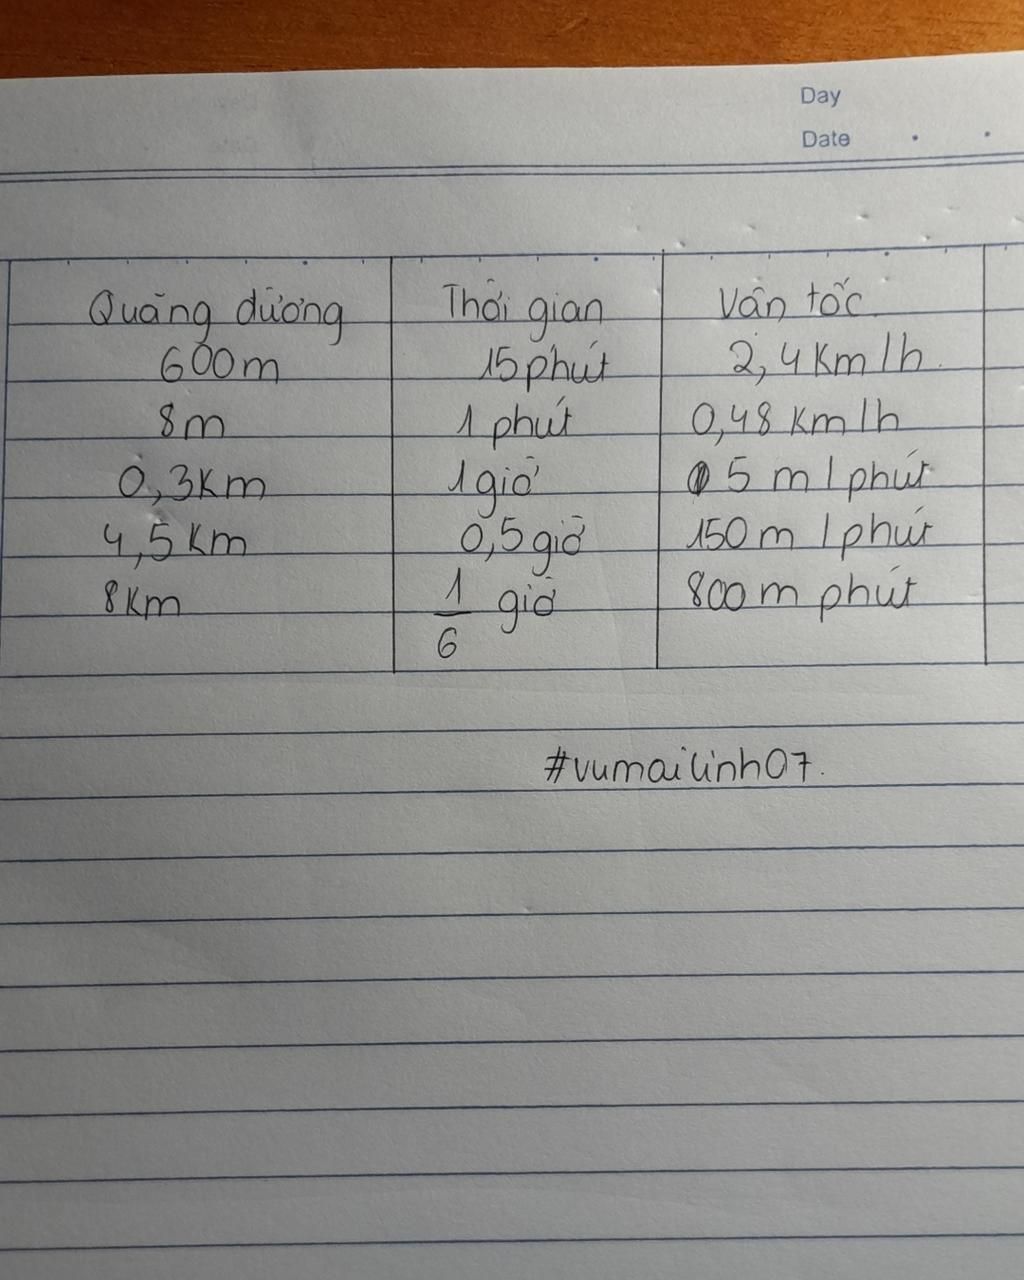 Day
Date
Quãng đường Thời gian Vận tốc
600m 15 phút 2,4 Km/h
8m 1 phút 0,48 Km/h
0,3Km 1 giờ 5 m / phút
4,5 Km 0,5 giờ 150 m / phút
8Km 1/6 giờ 800 m phút
#vumailinh07.